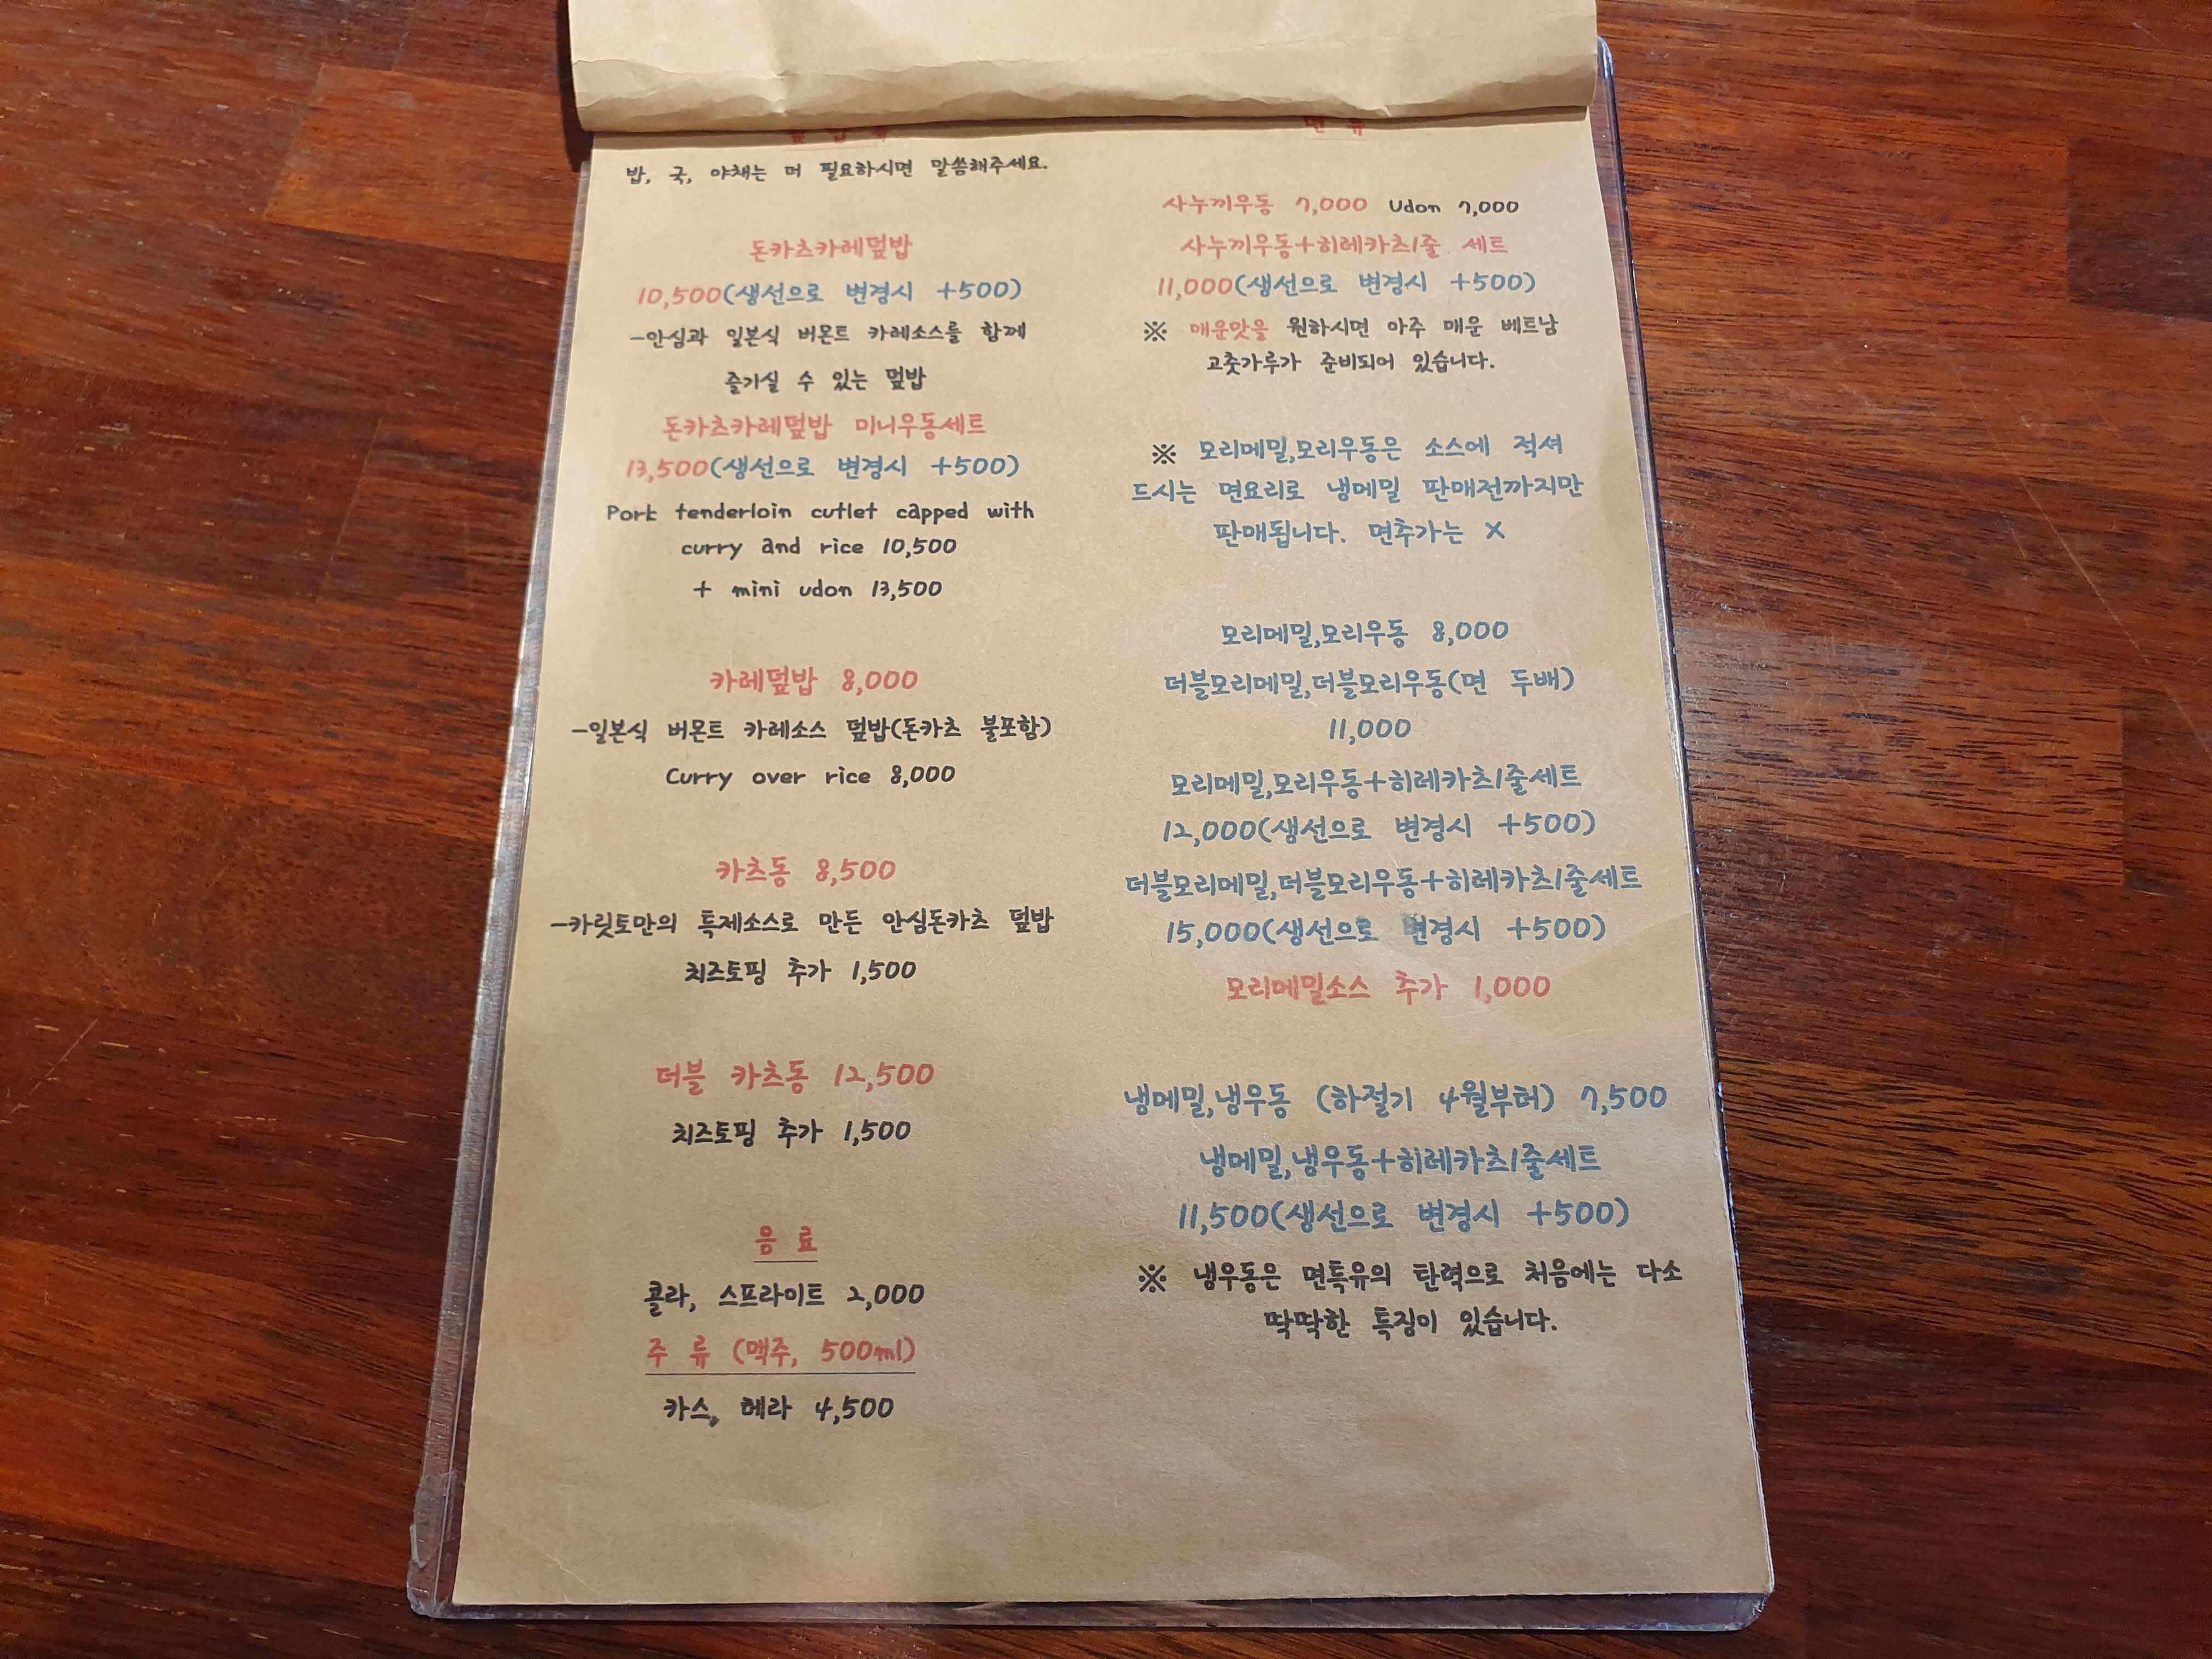 밥, 국, 야채는 더 필요하시면 말씀해주세요.
돈카츠카레덮밥
10,500(생선으로 변경시 +500)
-안심과 일본식 버몬트 카레소스를 함께
즐기실 수 있는 덮밥
돈카츠카레덮밥 미니우동세트
13,500(생선으로 변경시 +500)
Pork tenderloin cutlet capped with
curry and rice 10,500
+ mini udon 13,500
카레덮밥 8,000
-일본식 버몬트 카레소스 덮밥(돈카츠 불포함)
Curry over rice 8,000
카츠동 8,500
-카릿토만의 특제소스로 만든 안심돈카츠 덮밥
치즈토핑 추가 1,500
더블 카츠동 12,500
치즈토핑 추가 1,500
음 료
콜라, 스프라이트 2,000
주 류 (맥주, 500ml)
카스, 테라 4,500
면 류
사누끼우동 7,000 Udon 7,000
사누끼우동+히레카츠1줄 세트
11,000(생선으로 변경시 +500)
※ 매운맛을 원하시면 아주 매운 베트남
고춧가루가 준비되어 있습니다.
※ 모리메밀,모리우동은 소스에 적셔
드시는 면요리로 냉메밀 판매전까지만
판매됩니다. 면추가는 X
모리메밀,모리우동 8,000
더블모리메밀,더블모리우동(면 두배)
11,000
모리메밀,모리우동+히레카츠1줄세트
12,000(생선으로 변경시 +500)
더블모리메밀,더블모리우동+히레카츠1줄세트
15,000(생선으로 변경시 +500)
모리메밀소스 추가 1,000
냉메밀,냉우동 (하절기 4월부터) 7,500
냉메밀,냉우동+히레카츠1줄세트
11,500(생선으로 변경시 +500)
※ 냉우동은 면특유의 탄력으로 처음에는 다소
딱딱한 특징이 있습니다.